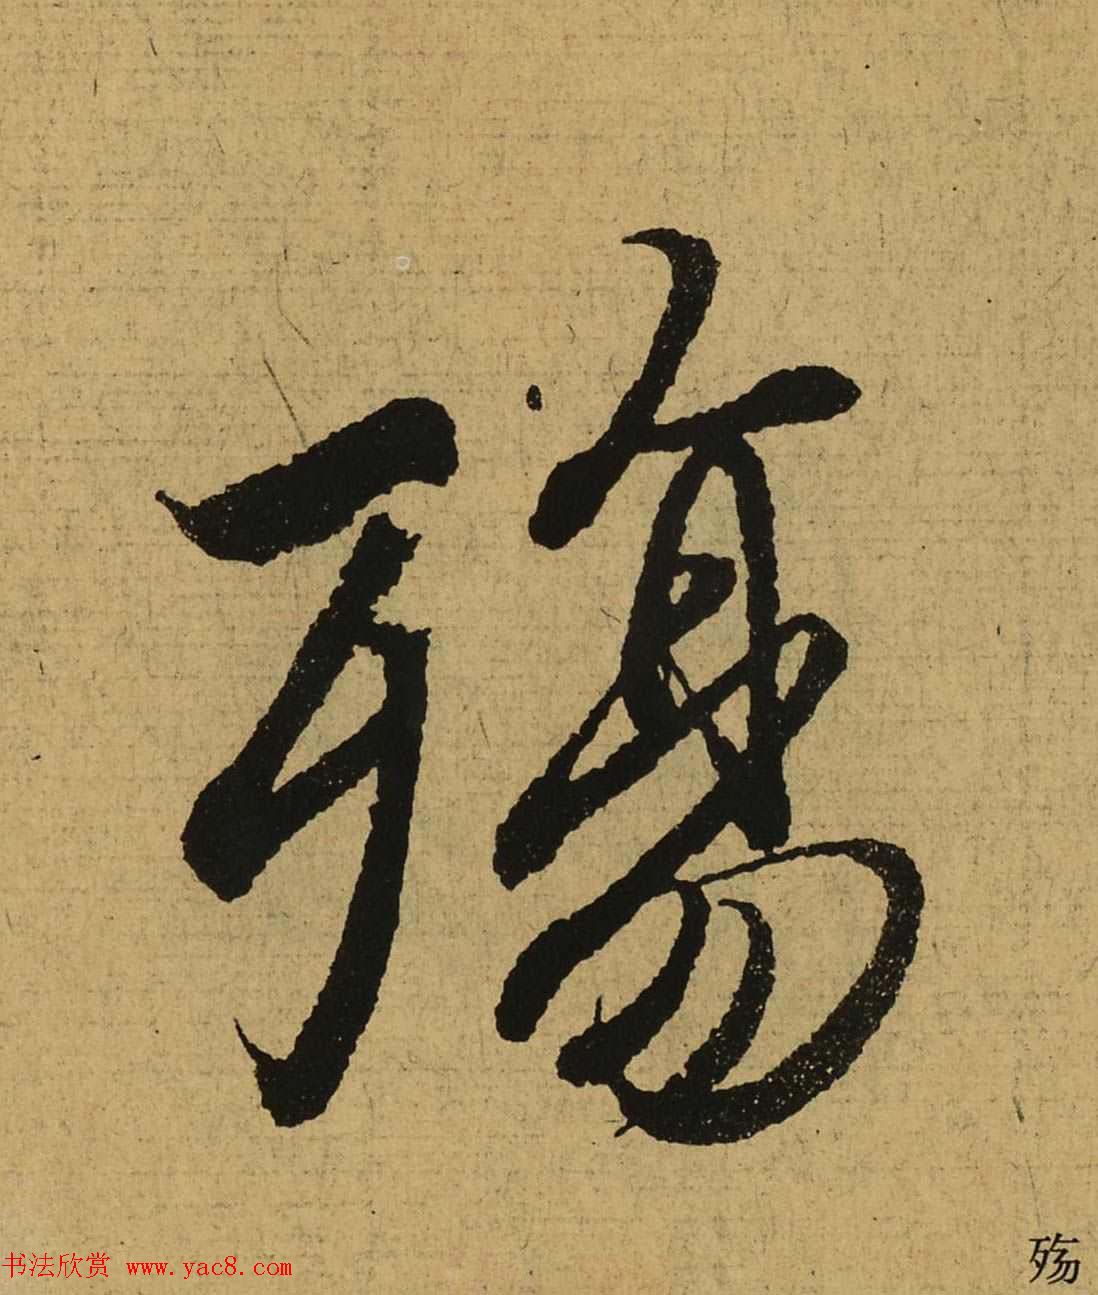 殇
书法欣赏 www.yac8.com
殇